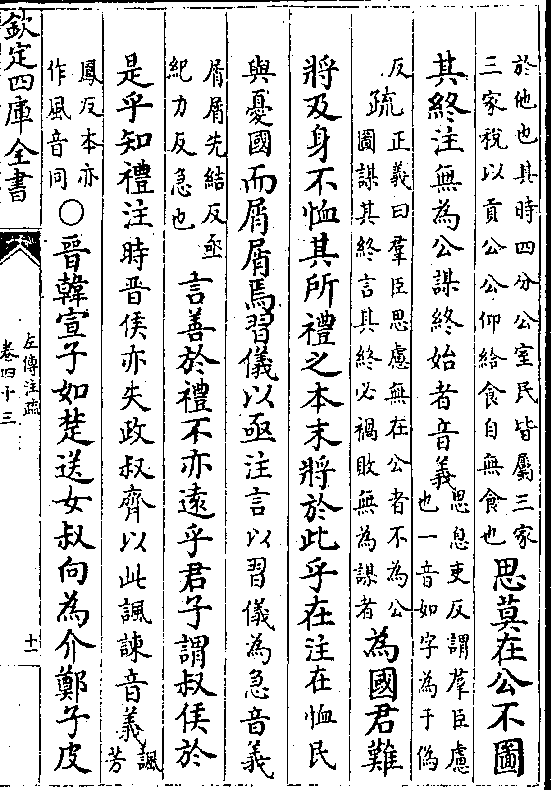 於他也其時四分公室民皆屬三家
三家稅以貢公公仰給食自無食也
思莫在公不圖
其終注無為公謀終始者音義
思息吏反謂羣臣慮
也一音如字為于偽
反
疏
正義曰羣臣思慮無在公者不為公
圖謀其終言其終必禍敗無為謀者
為國君難
將及身不恤其所禮之本末將於此乎在注在恤民
與憂國而屑屑焉習儀以亟注言以習儀為急音義
屑屑先結反亟
紀力反急也
言善於禮不亦遠乎君子謂叔侯於
是乎知禮注時晉侯亦失政叔齊以此諷諫音義
諷
芳
鳳反本亦
作風音同
○晉韓宣子如楚送女叔向為介鄭子皮
欽定四庫全書
左傳注疏
卷四十三
十一